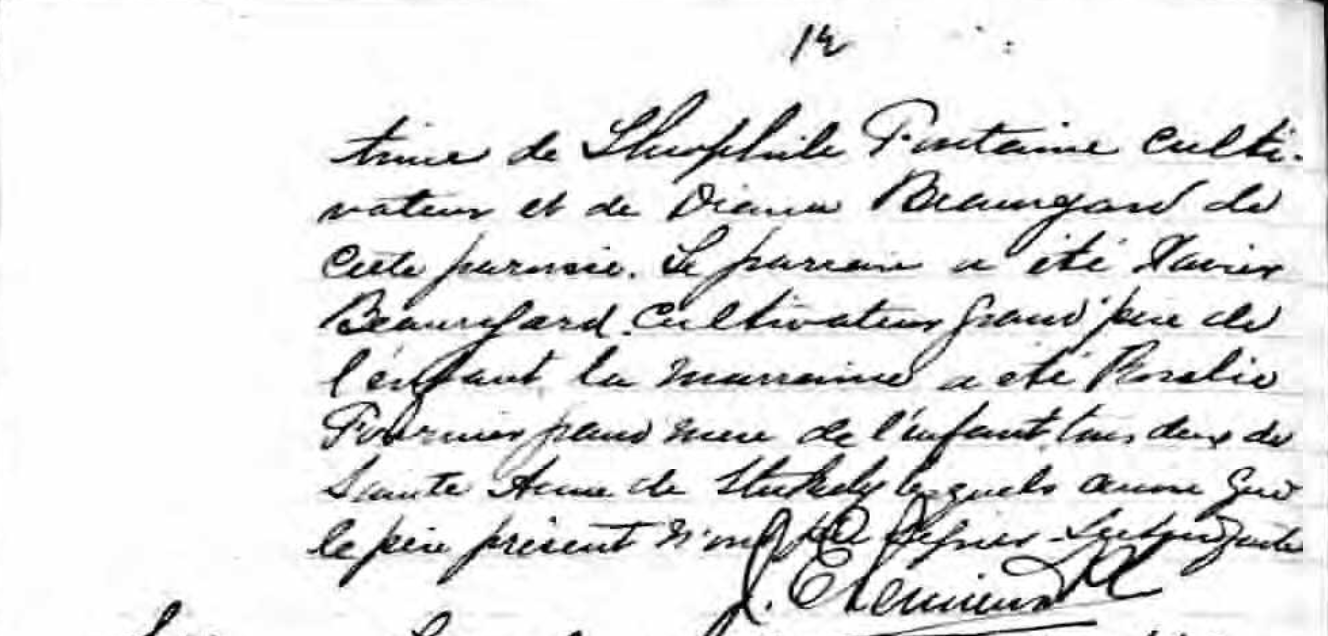 time de Théophile Fontaine culti-
vateur et de Diana Beauregard de
cette paroisse. Le parrain a été Xavier
Beauregard cultivateur grand'père de
l'enfant la marraine a été Rosalie
Fournier grand mère de l'enfant, tous deux de
Sainte Anne de Stukely lesquels ainsi que
le père présent n'ont pu signer. Lecture faite
J. E. Lemieux